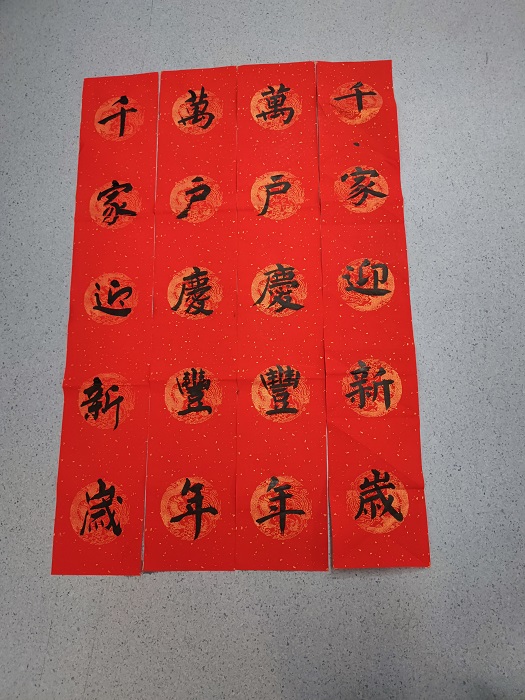 千家迎新歲
萬户慶豐年
萬户慶豐年
千家迎新歲